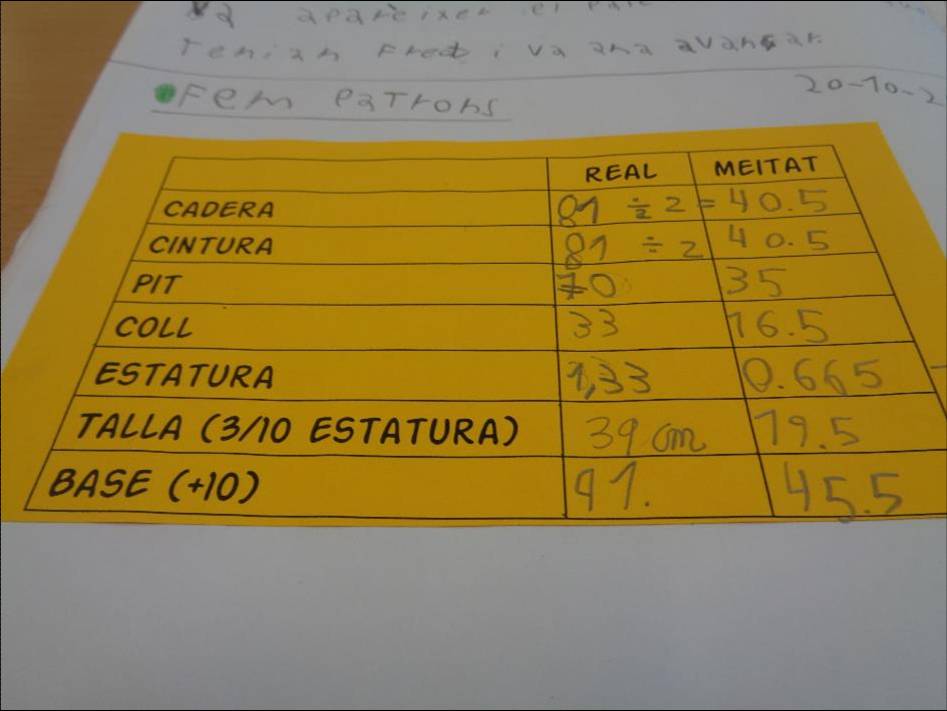 va apareixer el
Tenian Fred i va ana avançar.
20-10-2
Fem PaTrons
REAL MEITAT
CADERA 81 ÷ 2 = 40.5
CINTURA 81 ÷ 2 40.5
PIT 70 35
COLL 33 16.5
ESTATURA 1,33 0.665
TALLA (3/10 ESTATURA) 39 cm 19.5
BASE (+10) 91. 45.5